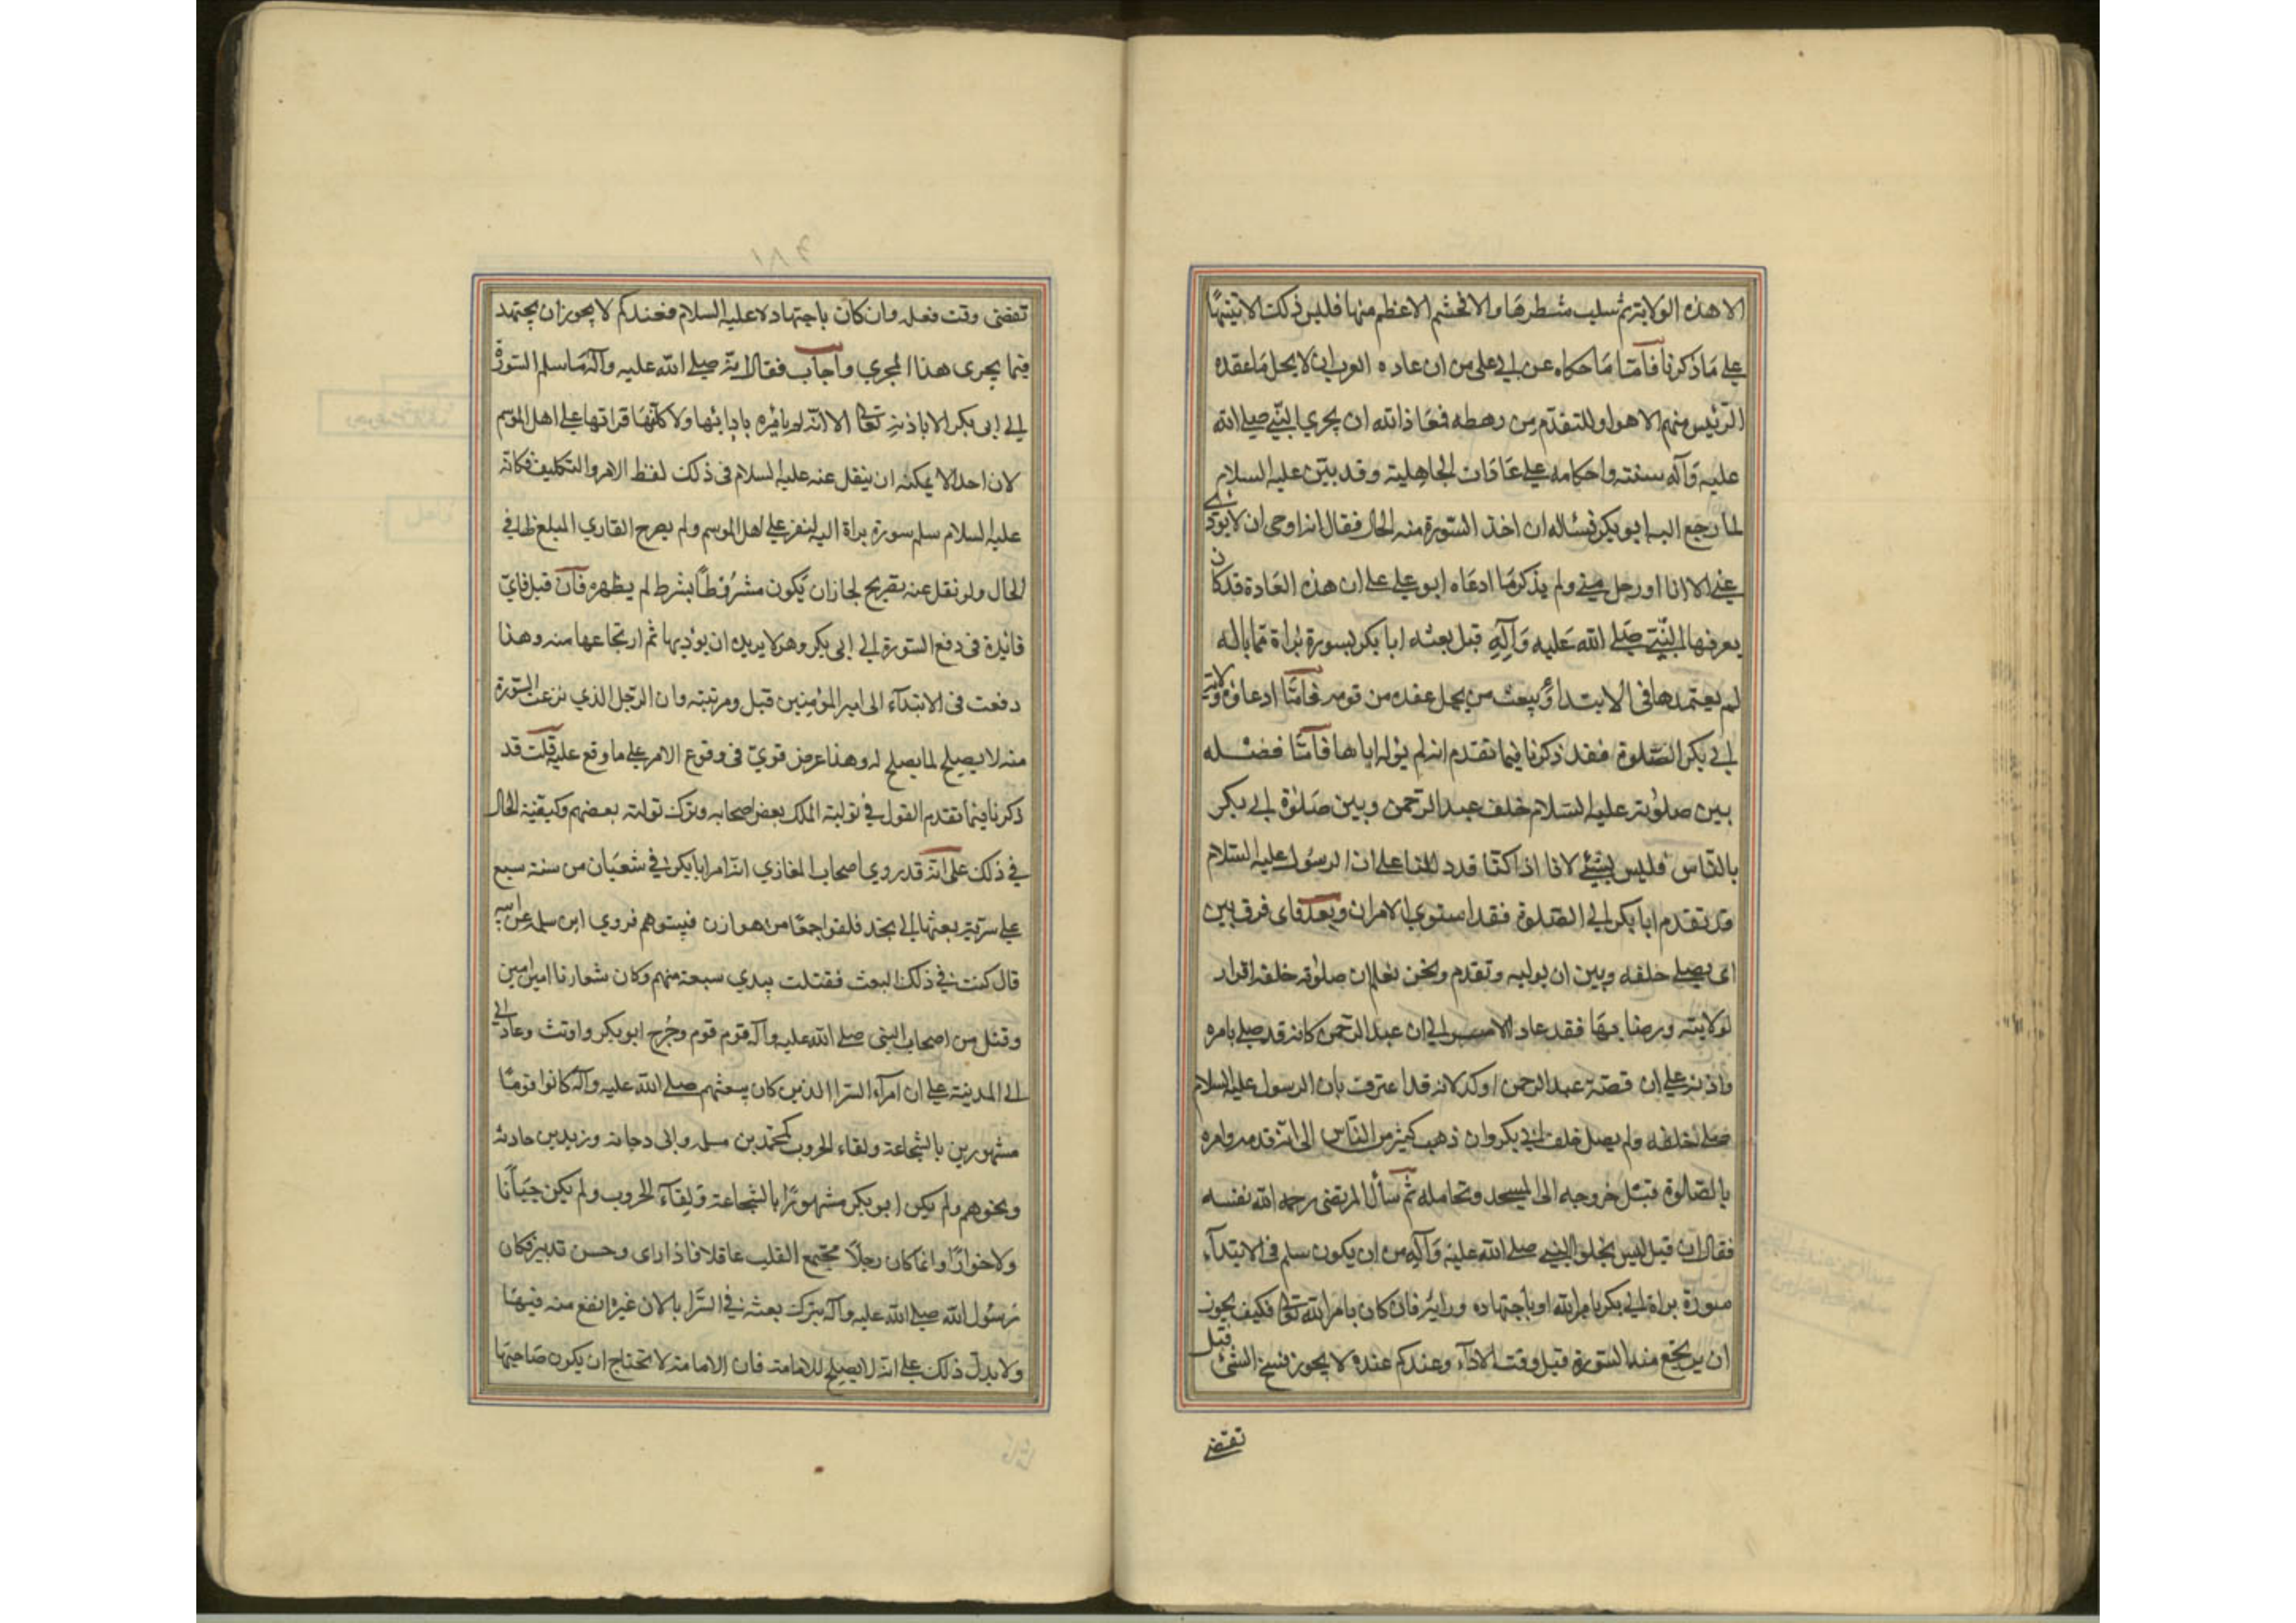 الا هذه الولاية ثم سلب شطرها والافخم الاعظم منها فليس ذلك الا تنبيها
علي ما ذكرنا فاما ما حكاه عن ابي علي من ان عادة العرب ان لا يحل ما عقده
الرئيس منهم الا هو او المتقدم من رهطه فمعاذ الله ان يجري النبي صلي الله
عليه وآله سنته واحكامه علي عادات الجاهلية وقد بين عليه السلام
لما رجع اليه ابو بكر فسئاله ان اخذ السورة منه الحال فقال انه اوحي ان لا يؤدي
عني الا انا او رجل مني ولم يذكر ما ادعاه ابو علي علي ان هذه العادة قد كان
يعرفها النبي صلي الله عليه وآله قبل بعثه ابا بكر بسورة براة فما باله
لم يعتمدها في الابتداء ويبعث من يحل عقده من قومه فاما ادعاؤه ولاية
ابي بكر الصلوة فقد ذكرنا فيما تقدم انه لم يوله اياها فاما فضله
بين صلوته عليه السلام خلف عبد الرحمن وبين صلوة ابي بكر
بالناس فليس بشئ لانا اذا كنا قد دللنا علي ان الرسول عليه السلام
قد تقدم ابا بكر الي الصلوة فقد استوي الامران وبعد فاي فرق بين
ان يصلي خلفه وبين ان يوليه وتقدم ونحن نعلم ان صلوته خلفه اقرار
لولايته ورضا بها فقد عاد الامر الي ان عبد الرحمن كانه قد صلي بامره
واذنه علي ان قصة عبد الرحمن اوكد لانه قد اعترف بان الرسول عليه السلام
صلي خلفه ولم يصل خلف ابي بكر وان ذهب كثير من الناس الي انه قدمه وامره
بالصلوة قبل خروجه الي المسجد وتحامله ثم سأل المرتضي رحمه الله نفسه
فقال ان قيل ليس يخلو النبي صلي الله عليه وآله من ان يكون سلم في الابتداء
سورة براة الي ابي بكر بامر الله او باجتهاده ورايه فان كان بامر الله تعالي فكيف يجوز
ان يرتجع منه السورة قبل وقت الاداء وعندكم عنده لا يجوز نسخ الشئ قبل
تقضي
تقضي وقت فعله وان كان باجتهاد لا عليه السلام فعندكم لا يجوز ان يجتهد
فيما يجري هذا المجري واجاب فقال انه صلي الله عليه وآله ما سلم السورة
الي ابي بكر الا باذنه تعالي الا انه لم يامره بادائها ولا كلفها قراتها علي اهل الموسم
لان احدا لا يمكنه ان ينقل عنه عليه السلام في ذلك لفظ الامر والتكليف فكانه
عليه السلام سلم سورة براة اليه ليقر علي اهل الموسم ولم يصرح القاري المبلغ لها في
الحال ولو نقل عنه تصريح لجاز ان يكون مشروطا بشرط لم يظهره فان قيل فاي
فائدة في دفع السورة الي ابي بكر وهو لا يريد ان يؤديها ثم ارتجاعها منه وهذا
دفعت في الابتداء الي امير المؤمنين قبل ومرتبته وان الرجل الذي نزعت السورة
منه لا يصلح لما يصلح له وهذا عرض قوي في وقوع الامر علي ما وقع عليه قلت قد
ذكرنا فيما تقدم القول في تولية الملك بعض اصحابه وترك تولية بعضهم وكيفية الحال
في ذلك علي انه قد روي اصحاب المغازي انه امر ابا بكر في شعبان من سنة سبع
علي سرية بعثها الي نجد فلقوا جمعا من هوازن فبيتوهم فروي ابن سلمه عن ابيه
قال كنت في ذلك البعث فقتلت بيدي سبعة منهم وكان شعارنا امت امت
وقتل من اصحاب النبي صلي الله عليه وآله قوم قوم وجرح ابو بكر وارتث وعاد الي
الي المدينة علي ان امراء السرايا الذين كان يبعثهم صلي الله عليه وآله كانوا قوما
مشهورين بالشجاعة ولقاء الحروب كمحمد بن مسلمه وابي دجانه وزيد بن حارثه
ونحوهم ولم يكن ابو بكر مشهورا بالشجاعة ولقاء الحروب ولم يكن جبانا
ولا خوارا وانما كان رجلا مجتمع القلب عاقلا فاذا راي وحسن تدبير فكان
رسول الله صلي الله عليه وآله يترك بعثه في السرايا لان غيره انفع منه فيها
ولا يدل ذلك علي انه لا يصلح للامامة فان الامامة لا تحتاج ان يكون صاحبها